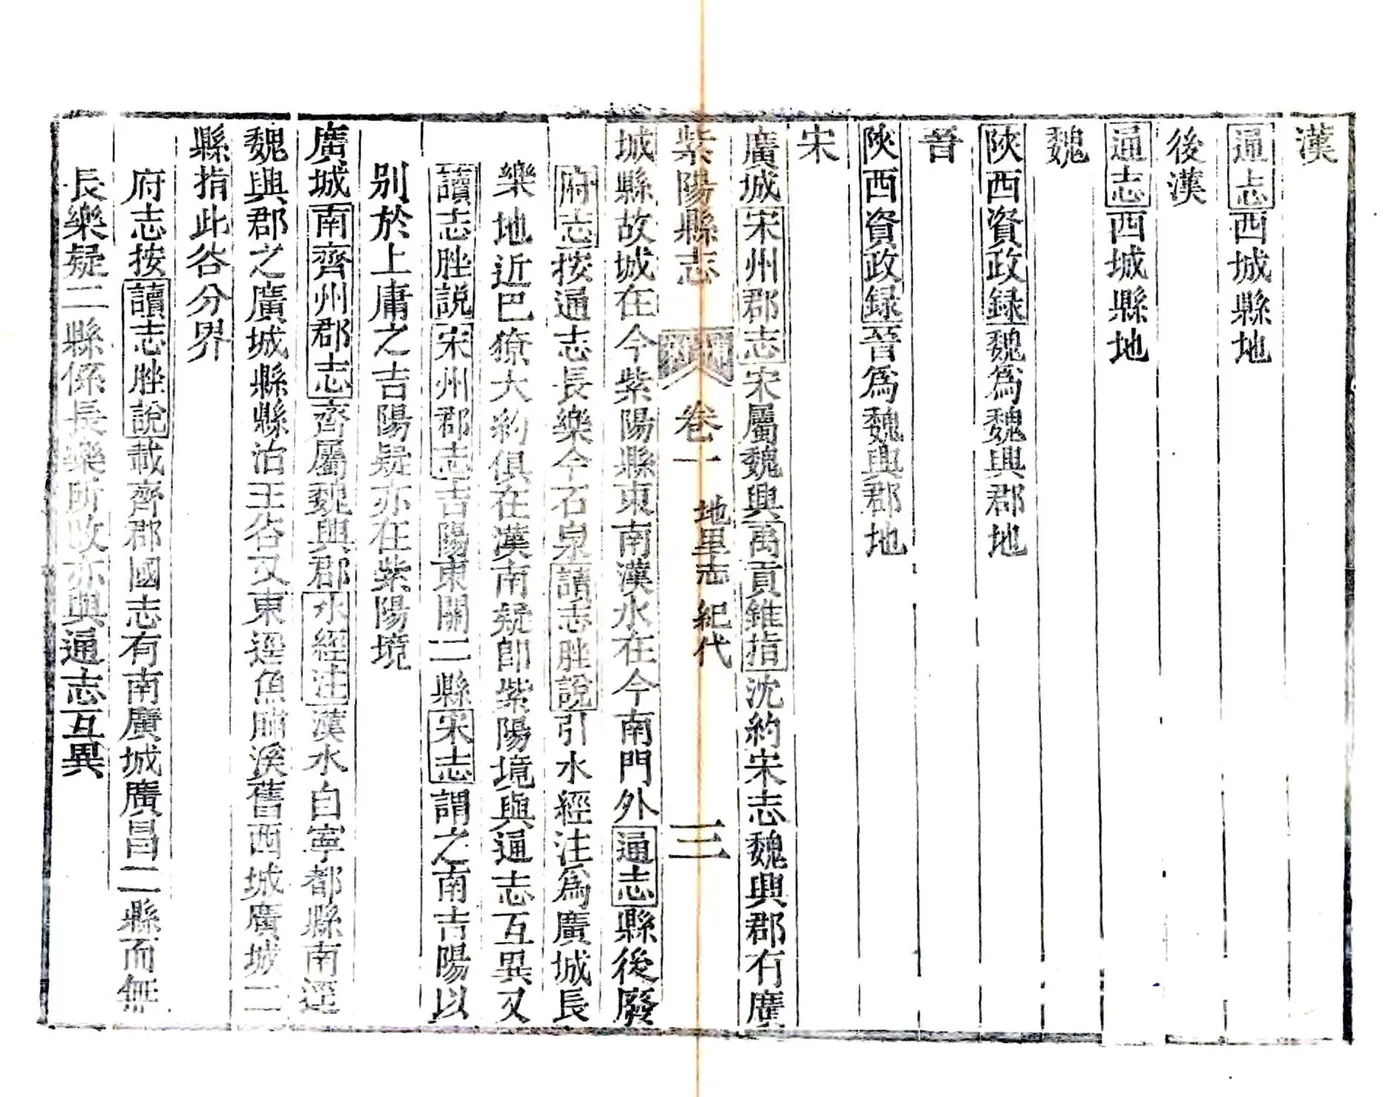 漢
通志西城縣地
後漢
通志西城縣地
魏
陝西資政録魏爲魏興郡地
晉
陝西資政録晉爲魏興郡地
宋
廣城宋州郡志宋屬魏興禹貢錐指沈約宋志魏興郡有廣
紫陽縣志 卷一 地里志 紀代 三
城縣故城在今紫陽縣東南漢水在今南門外通志縣後廢
府志按通志長樂今石泉讀志脞說引水經注爲廣城長
樂地近巴獠大約俱在漢南疑卽紫陽境與通志互異又
讀志脞説宋州郡志吉陽東關二縣宋志謂之南吉陽以
別於上庸之吉陽疑亦在紫陽境
廣城南齊州郡志齊屬魏興郡水經注漢水自寧都縣南逕
魏興郡之廣城縣縣治王谷又東逕魚脯溪舊西城廣城二
縣指此谷分界
府志按讀志脞說載齊郡國志有南廣城廣昌二縣而無
長樂疑二縣係長樂所改亦與通志互異